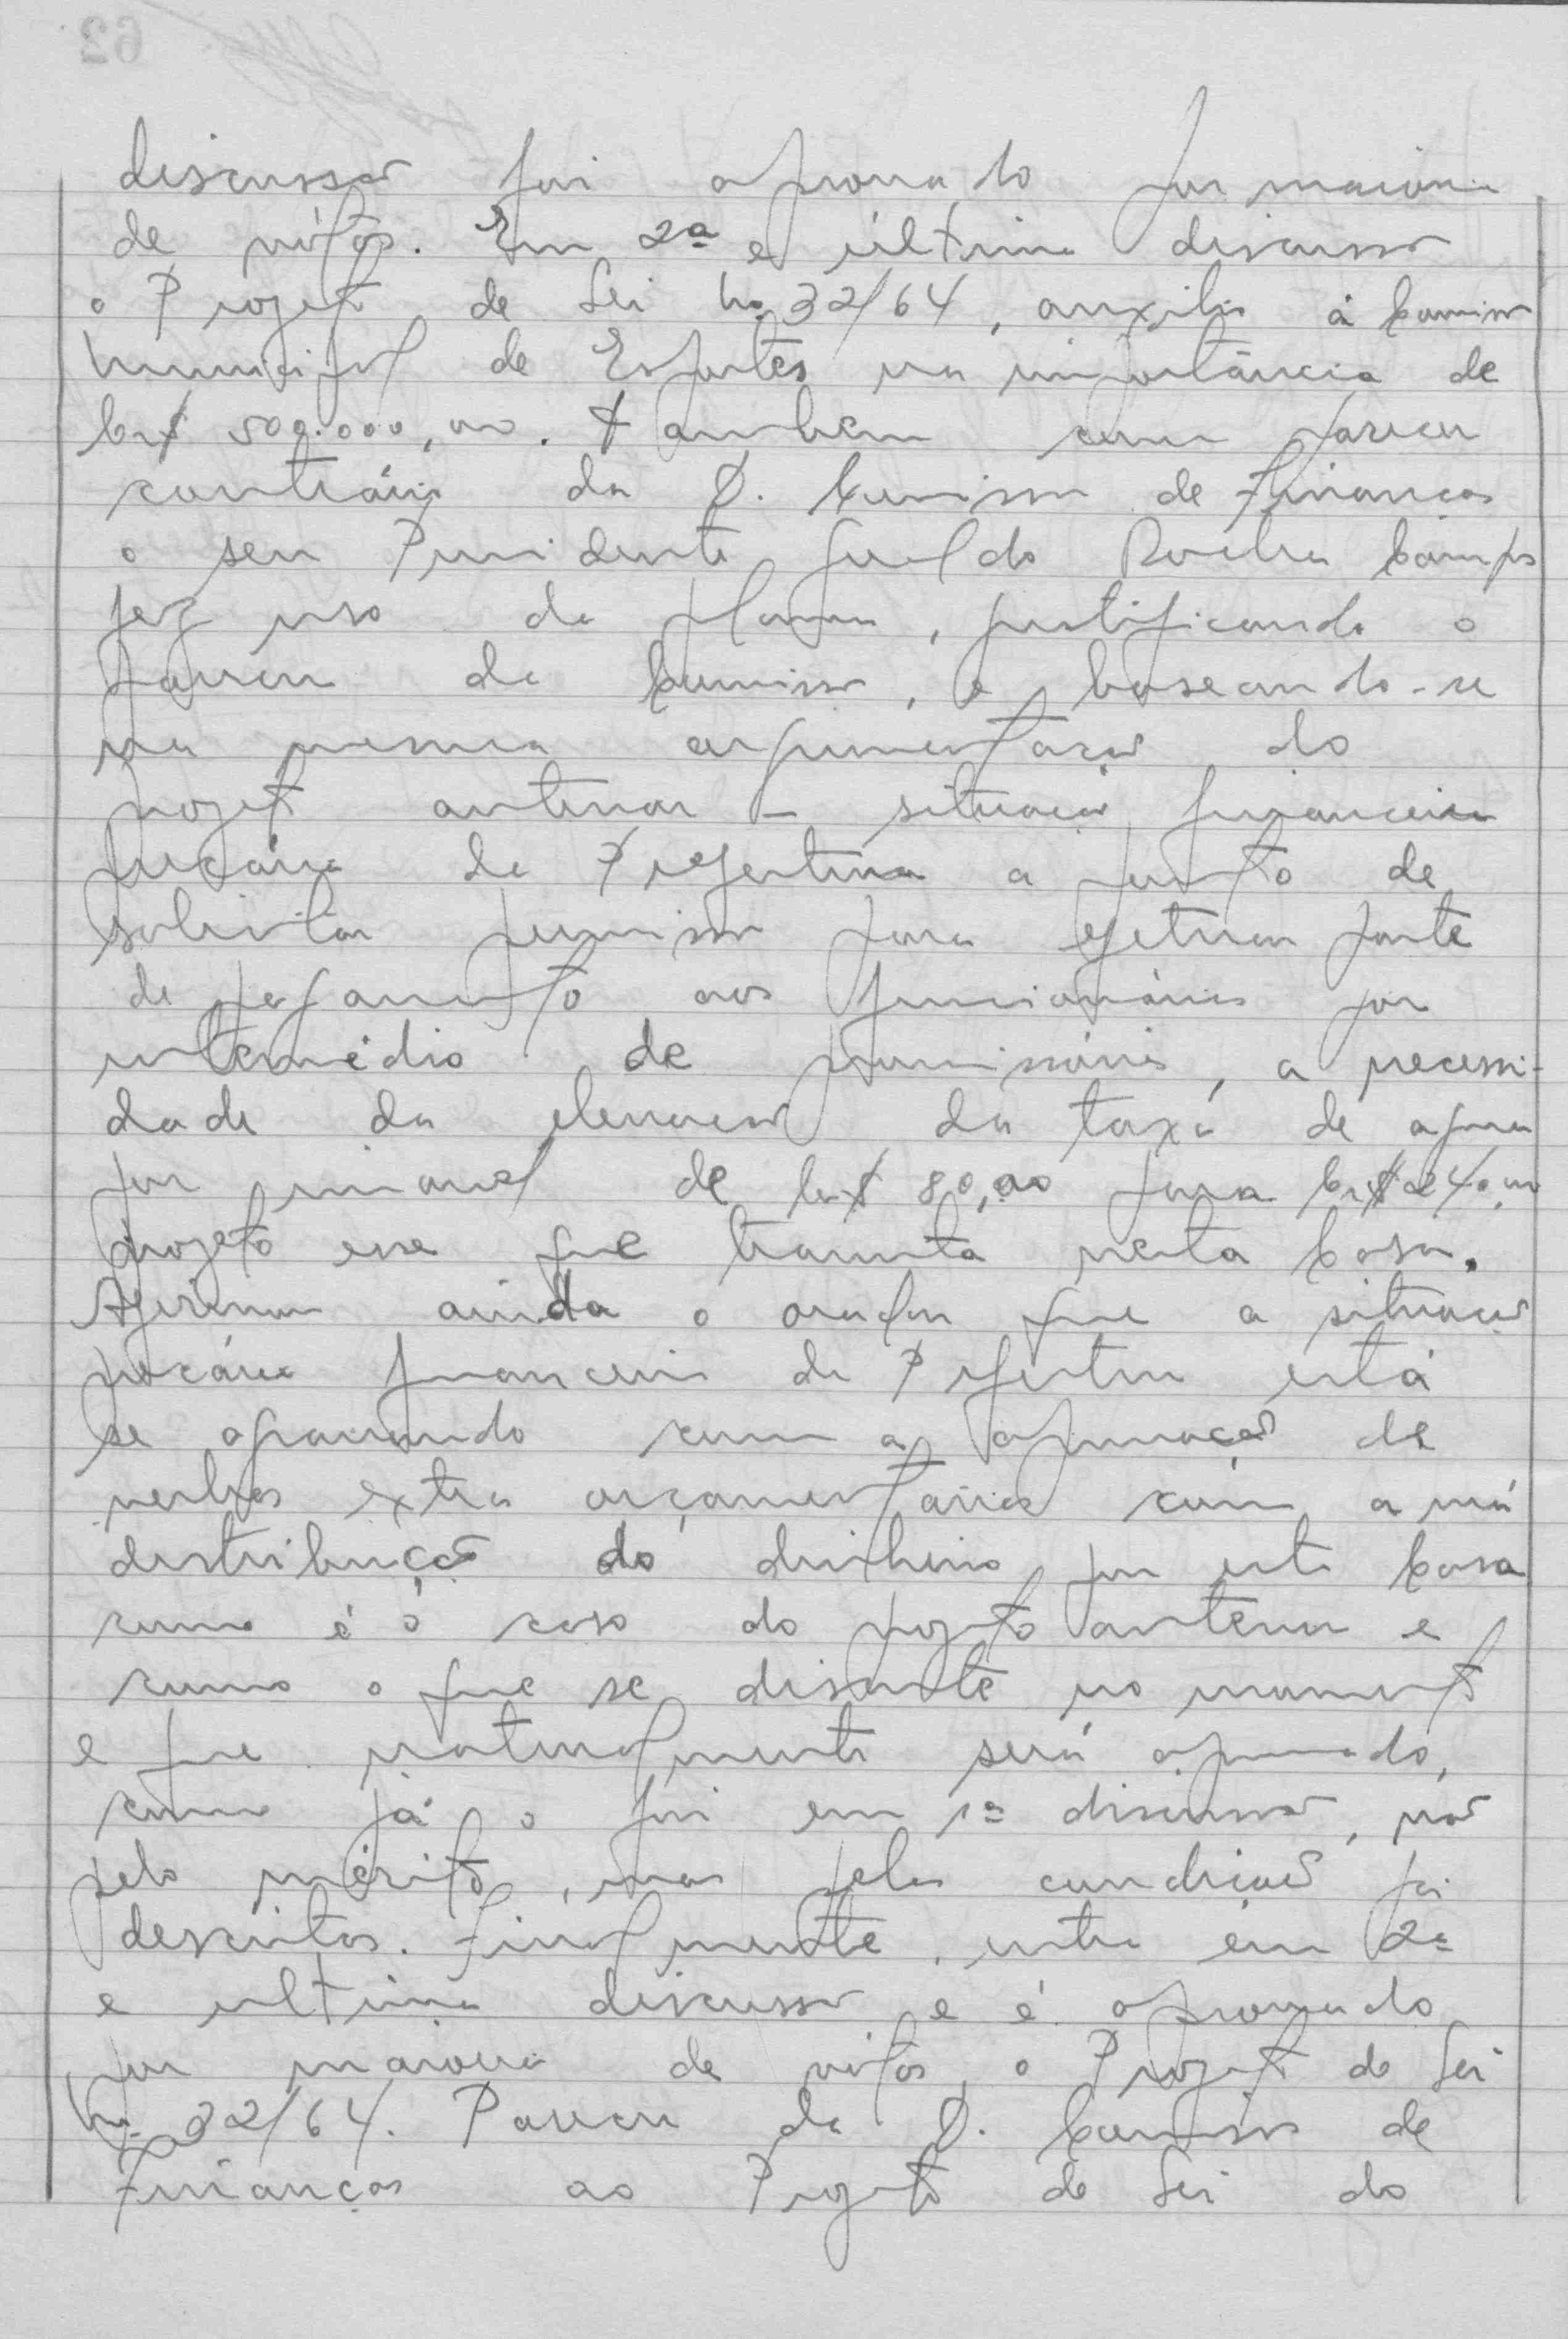 discussão foi aprovado por maioria
de vótos. Em 2ª e última discussão
o Projeto de Lei No 32/64, auxilio à Comissão
Municipal de Esportes na importância de
Cr$ 500.000,00. Tambem com parecer
contrário da D. Comissão de Finanças
o seu Presidente Geraldo Rocha Campos
fez uso da palavra, justificando o
parecer da Comissão, e baseando-se
na mesma argumentação do
projeto anterior - situação financeira
precária da Prefeitura a ponto de
solicitar permissão para efetuar parte
do pagamento aos funcionários por
intermédio de promissórias, a necessi-
dade da elevação da taxa de agua
por imovel de Cr$ 80,00 para Cr$ 240,00
projeto esse que tramita nesta Casa.
Afirmou ainda o orador que a situação
precária financeira da Prefeitura está
se agravando com a aprovação de
verbas extra orçamentárias com a má
distribuição do dinheiro por esta Casa
como é o caso do projeto anterior e
como o que se discute no momento
e que naturalmente será aprovado,
como já o foi em 1ª discussão, não
pelo mérito, mas pelas condições já
descritas. Finalmente, entra em 2ª
e ultima discussão e é aprovado
por maioria de vótos, o Projeto de Lei
No 32/64. Parecer da D. Comissão de
Finanças ao Projeto de Lei do